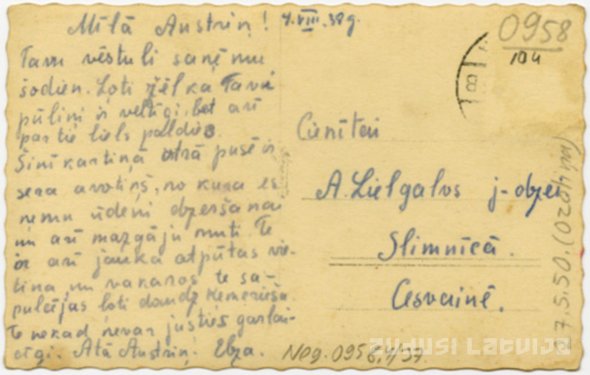 Mīļā Austriņ! 4.VIII.38g.
Tavu vēstuli saņēmu
šodien. Ļoti žēl ka Tavi
pūliņi ir veltīgi, bet arī
par tie liels paldies.
Šinī kartiņā otrā pusē ir
sēra avotiņš, no kura es
ņemu ūdeni dzeršanai
un arī mazgāju muti. Te
ir arī jauka atpūtas vie-
tiņa un vakaros te sa-
pulcējas ļoti daudz
Te nekad nevar justies garlai-
cīgi. Atā Austriņ! Elza.
Cienītai
A. Lielgalvs j-dzei
Slimnīcā.
Cesvainē.
0958
104
7.5.50. (Ozoliņa)
Neg. 0958,4/37
ZUDUSI LATVIJA